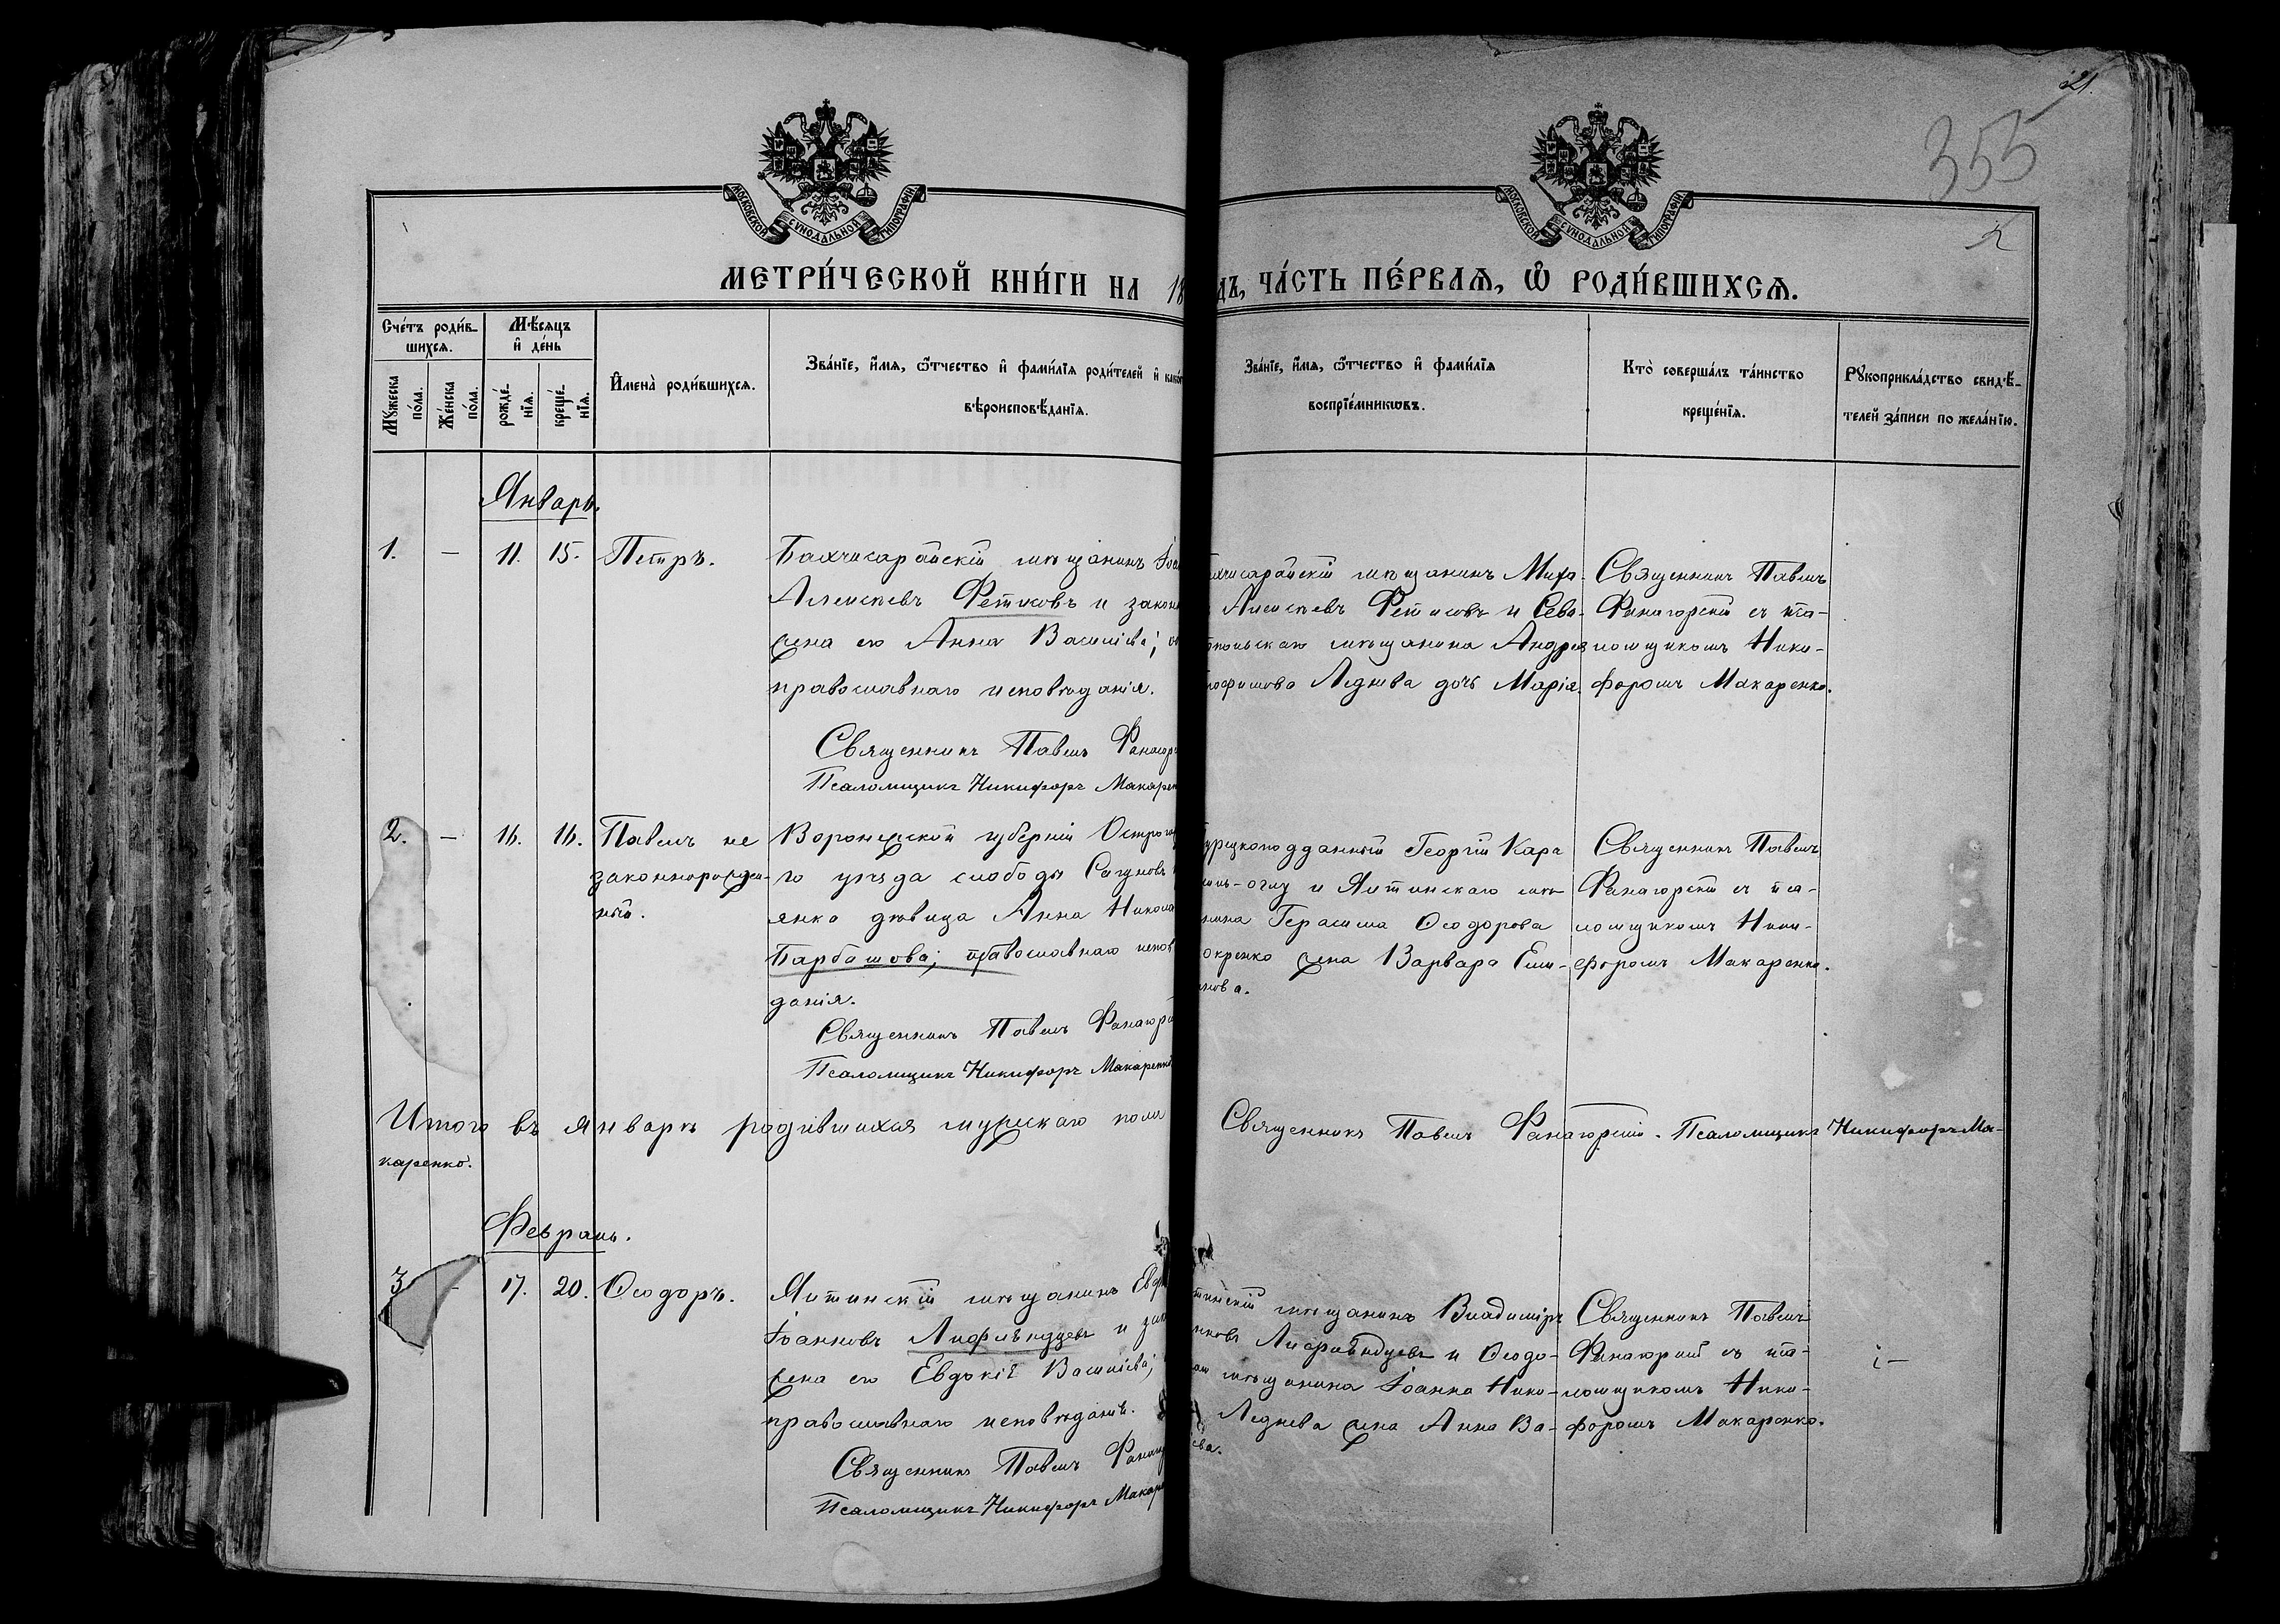 21.
355
2
МОСКОВСКОЙ СѴНОДАЛЬНОЙ ТИПОГРАФІИ
МОСКОВСКОЙ СѴНОДАЛЬНОЙ ТИПОГРАФІИ
МЕТРИ́ЧЕСКОЙ КНИ́ГИ НА 18
ДЪ, ЧА́СТЬ ПЕ́РВАЯ, Ѿ РОДИ́ВШИХСЯ.
Сче́тъ роди́в-
шихся.
Мѣ́сяцъ
и҆ де́нь
Мꙋжеска
по́ла.
Же́нска
по́ла.
рожде́-
нїя.
креще́-
нїя.
И҆мена̀ роди́вшихся.
Зва́нїе, и҆́мя, ѻ҆́тчество и҆ фами́лїя роди́телей и҆ како́
вѣроисповѣ́данїя.
Зва́нїе, и҆́мя, ѻ҆́тчество и҆ фами́лїя
воспрїе́мникωвъ.
Кто̀ соверша́лъ та́инство
креще́нїя.
Рꙋкоприкла́дство свидѣ́-
телей за́писи по жела́нїю.
Январь.
1. — 11. 15. Петръ.
Бахчисарайскій мѣщанинъ Іоа
Алексѣевъ Фетисовъ и закон
жена его Анна Васильева;
православнаго исповѣданія.
Священникъ Павелъ Фанагор
Псаломщикъ Никифоръ Макарен
хчисарайскій мѣщанинъ Миха-
Алексѣевъ Фетисовъ и Сева-
топольскаго мѣщанина Андрея
рофимова Леднева дочь Марія.
Священникъ Павелъ
Фанагорскій съ пса-
ломщикомъ Ники-
форомъ Макаренко.
2. — 16. 16. Павелъ не
законнорожден-
ный.
Воронежской губерніи Острого
го уѣзда слободы Сагуновъ
янка дѣвица Анна Никола
Барбашова; православнаго испов
данія.
Священникъ Павелъ Фанагор
Псаломщикъ Никифоръ Макаренко
урецкоподданный Георгій Кара
-оглу и Ялтинскаго мѣ-
нина Герасима Ѳеодорова
окренко жена Варвара Еми-
нова.
Священникъ Павелъ
Фанагорскій съ пса-
ломщикомъ Ники-
форомъ Макаренко.
Итого въ январѣ родившихся мужескаго пола
Священникъ Павелъ Фанагорскій. Псаломщикъ Никифоръ Ма-
каренко.
Февраль.
3 — 17. 20. Ѳеодоръ.
Ялтинскій мѣщанинъ Евф
Іоанновъ Лифляндцевъ и зак
жена его Евдокія Васильева;
православнаго исповѣданія.
Священникъ Павелъ Фанаг
Псаломщикъ Никифоръ Макар
тинскій мѣщанинъ Владиміръ
нновъ Лифляндцевъ и Ѳеодо-
мѣщанина Іоанна Нико-
Леднева жена Анна Ва-
ева.
Священникъ Павелъ
Фанагорскій съ пса-
ломщикомъ Ники-
форомъ Макаренко.